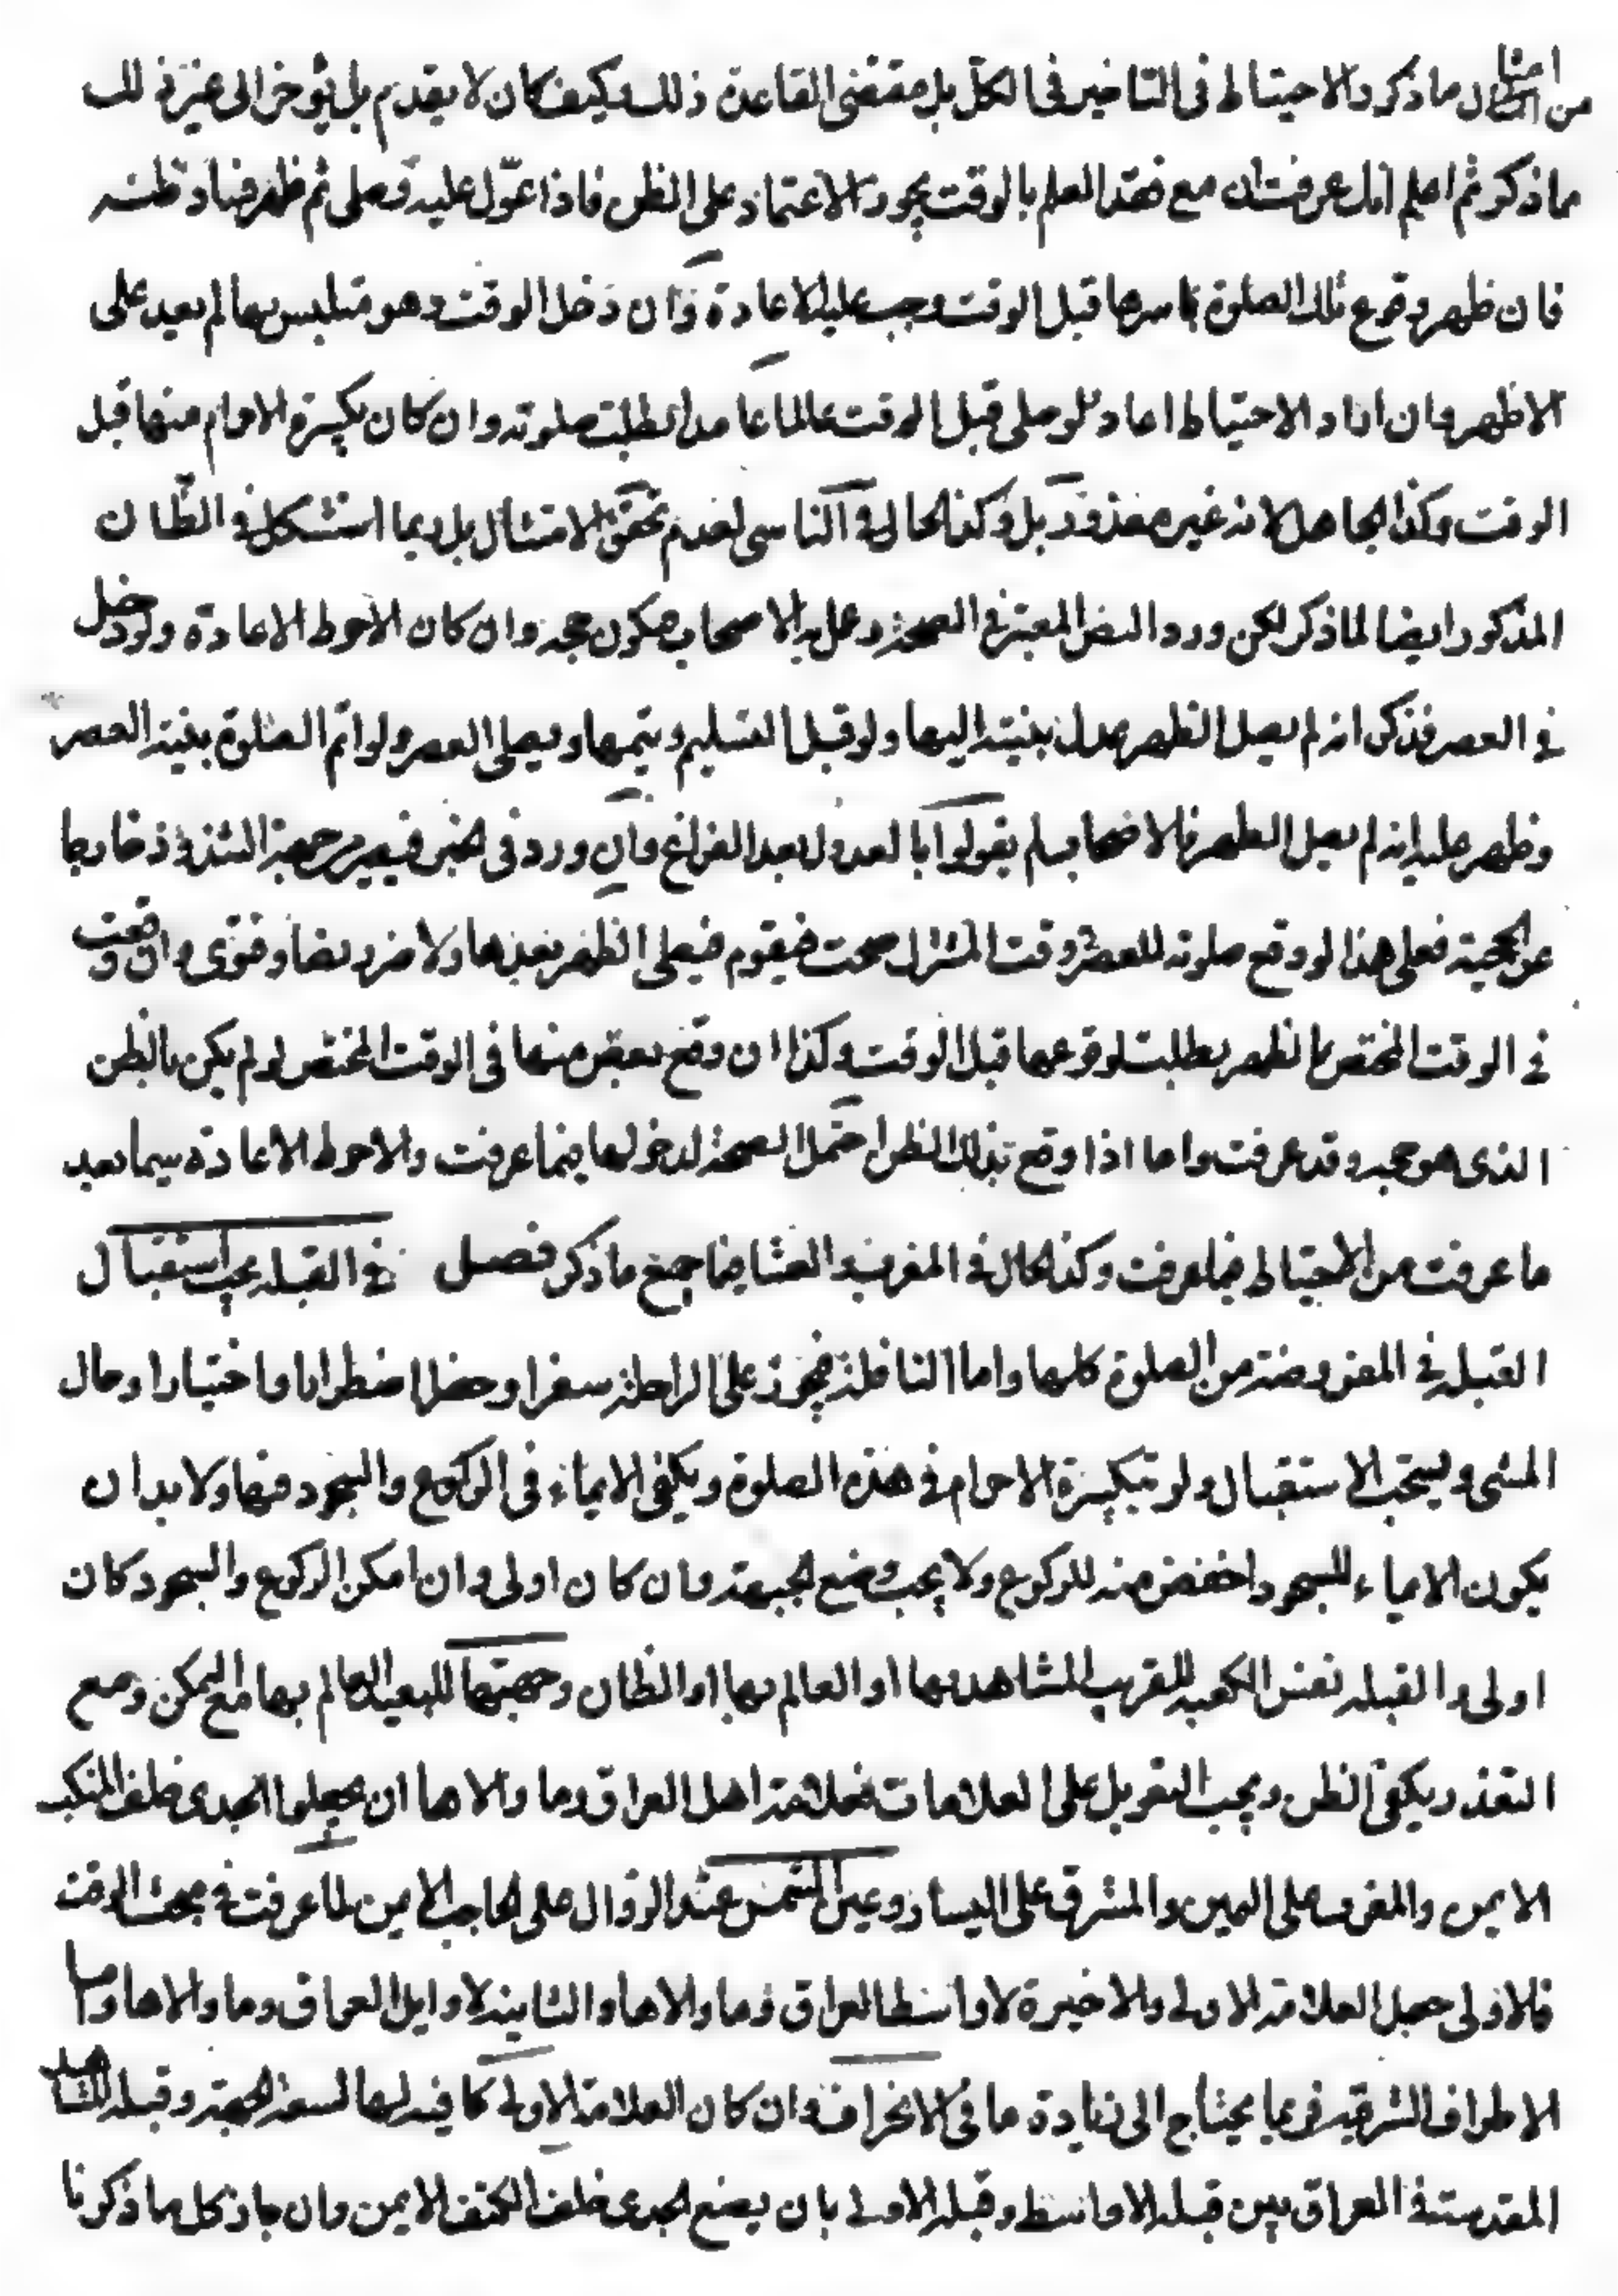 من امثال ما ذكر والاحتياط فى التاخير فى الكلّ بل مقتضى القاعدة ذلك وكيف كان لا يقدم بل يؤخر الى غير ذلك
مما ذكر ثم اعلم انك عرفت ان مع فقد العلم بالوقت يجوز الاعتماد على الظن فاذا عوّل عليه وصلى ثم ظهر فساد ظنه
فان ظهر وقوع تلك الصلوة باسرها قبل الوقت وجب عليه الاعادة وان دخل الوقت وهو متلبس بها لم يعيد على
الاظهر وان اراد الاحتياط اعاد ولو صلى قبل الوقت عالما عامدا بطلت صلوته وان كان تكبيرة الاحرام منها قبل
الوقت وكذا الجاهل لانه غير معذور بل وكذا الحال فى الناسى لعدم تحقق الامتثال بل ربما استشكل فى الظّان
المذكور ايضا لما ذكر لكن ورد النص المعتبر فى الصحة وعمل به الاصحاب فيكون حجة وان كان الاحوط الاعادة ولو دخل
فى العصر فذكر انه لم يصل الظهر عدل بنيته اليها ولو قبل التسليم ويتمها ويصلى العصر ولو اتم الصلوة بنية العصر
وظهر عليه انه لم يصل الظهر فالاصحاب لم يقولوا بالعدول بعد الفراغ وان ورد فى الخبر فيصير من جهة الشذوذ خارجا
عن الحجية فعلى هذا لو وقع صلوته للعصر وقت المشترك صحت فيقوم فيصلى الظهر بعدها ولا ضرر نصا وفتوى وان وقعت
فى الوقت المختص بالظهر بطلت لوقوعها قبل الوقت وكذا ان وقع بعض منها فى الوقت المختص لو لم يكن بالظن
الذى هو حجة وقد عرفت واما اذا وقع بذلك الظن احتمل الصحة لدخولها فيما عرفت والاحوط الاعادة سيما بعد
ما عرفت من الاحتياط فيما عرفت وكذا الحال فى المغرب والعشا فيما جميع ما ذكر فصل فى القبلة يجب استقبال
القبلة فى المفروضة من الصلوة كلها واما النافلة فيجوز على الراحلة سفرا وحضرا اضطرارا واختيارا وحال
المشى ويستحب الاستقبال ولو بتكبيرة الاحرام فى هذه الصلوة ويكفى الايماء فى الركوع والسجود فيها ولا بد ان
يكون الايماء للسجود اخفض منه للركوع ولا يجب وضع الجبهة وان كان اولى وان امكن الركوع والسجود كان
اولى والقبلة نفس الكعبة للقريب المشاهد بها او العالم بها او الظان وجهتها للبعيد العالم بها مع التمكن ومع
التعذر يكفى الظن ويجب التعويل على العلامات فعلامة اهل العراق وما والاها ان يجعلوا الجدى خلف المنكب
الايمن والمغرب على اليمين والمشرق على اليسار وعين الشمس عند الزوال على الحاجب الايمن لما عرفت فى مبحث الوقت
فالاولى جعل العلامة الاولى والاخيرة لاواسط العراق وما والاها والثانية لاوايل العراق وما والاها وما
الاطراف الشرقية فربما يحتاج الى زيادة ما فى الانحراف وان كان العلامة الاولى كافية لها لسعة الجهة وقبلة المشاهد
المقدسة فى العراق بين قبلة الاواسط وقبلة الاولى بان يضع الجدى خلف الكتف الايمن وان جاز كل ما ذكرنا